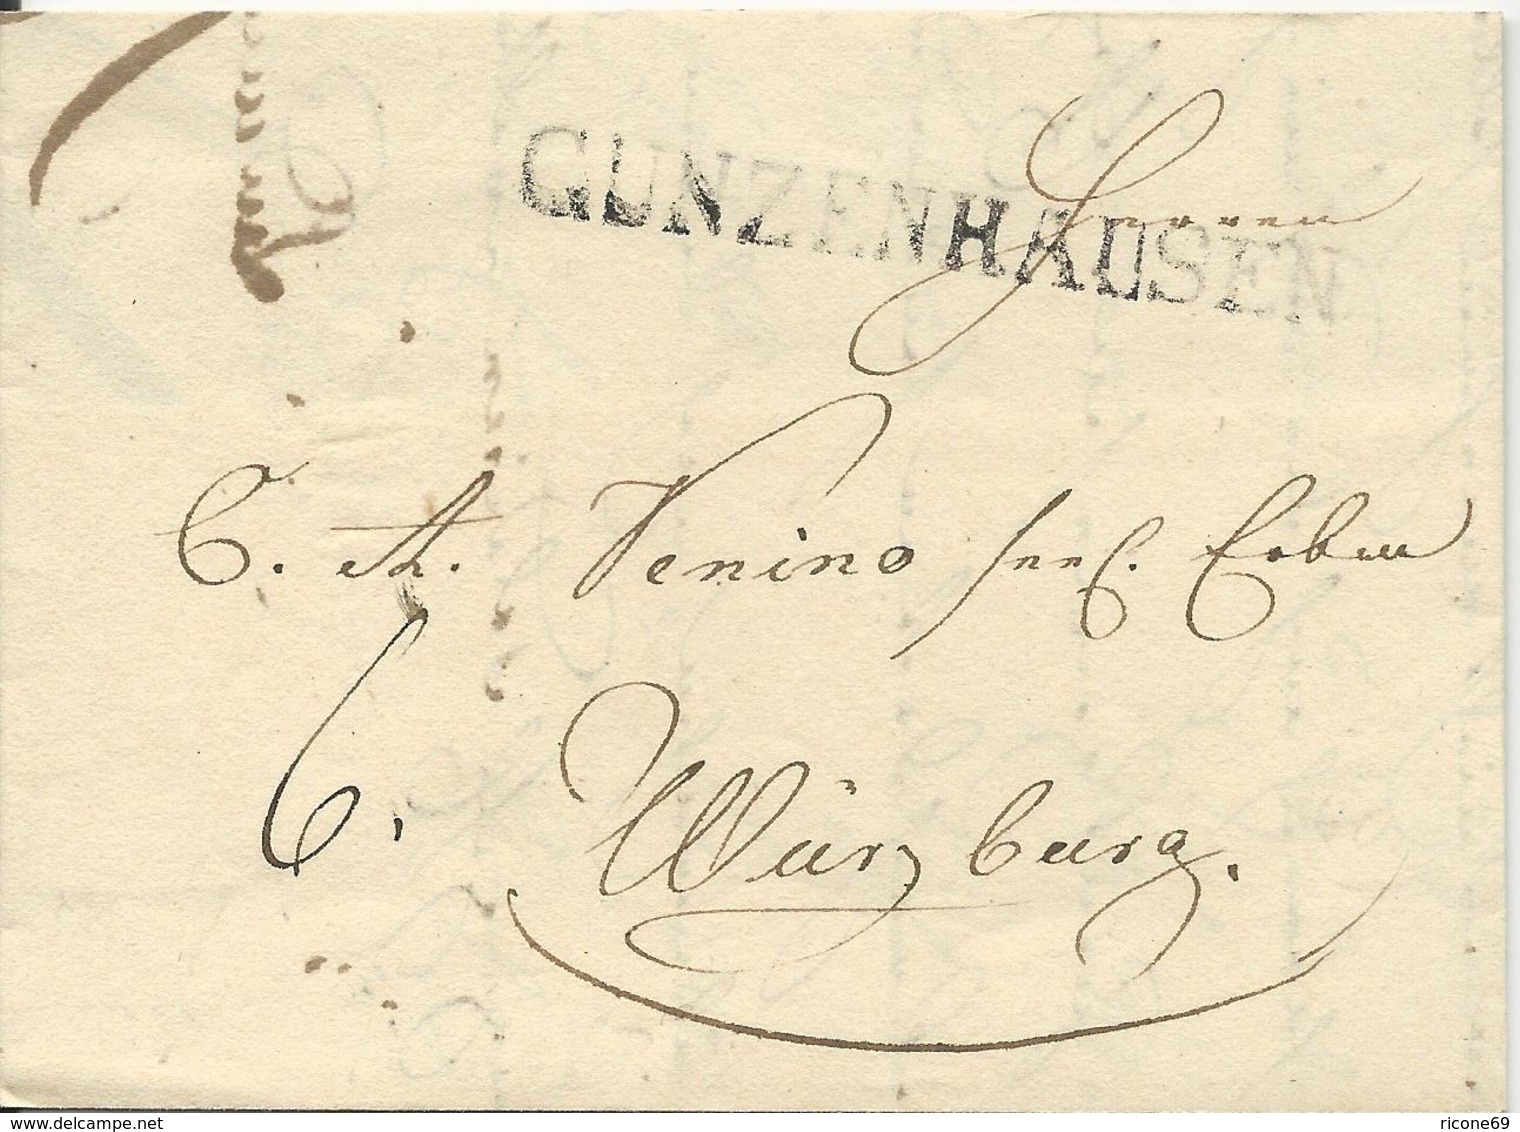 GUNZENHAUSEN
Herren
C. A. Venino seel. Erben
6.
Würzburg.
www.delcampe.net
ricone69